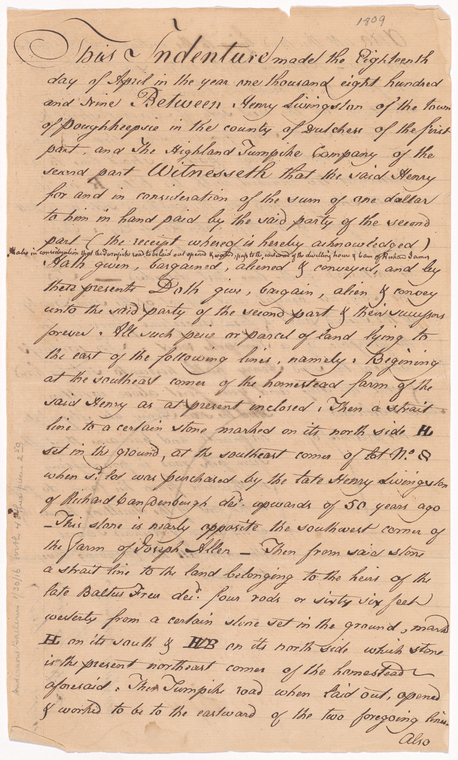 1809
This Indenture made the Eighteenth
day of April in the year one thousand eight hundred
and Nine Between Henry Livingston of the town
of Poughkeepsie in the county of Dutchess of the first
part, and The Highland Turnpike Company of the
second part Witnesseth that the said Henry
for and in consideration of the sum of one dollar
to him in hand paid by the said party of the second
part (the receipt whereof is hereby acknowledged)
& also in consideration that the turnpike road be laid out opened & worked the eastward of the dwelling house & barn of
Hath given, bargained, aliened & conveyed, and by
these presents Doth give, bargain, alien & convey
unto the said party of the second part & their successors
forever All such piece or parcel of land lying to
the east of the following lines, namely: Begining
at the southeast corner of the homestead farm of the
said Henry as at present inclosed; Then a strait
line to a certain stone marked on its north side HL
set in the ground, at the southeast corner of Lot No 8
when sd. lot was purchased by the late Henry Livingston
of Richard Vandenburgh decd. upwards of 50 years ago
- This stone is nearly opposite the southwest corner of
the Farm of Joseph Allen - Then from said stone
a strait line to the land belonging to the heirs of the
late Baltus decd. four rods or sixty six feet
westerly from a certain stone set in the ground, marked
HL on its south & on its north side which stone
is the present northeast corner of the homestead
aforesaid; The Turnpike road when laid out, opened
& worked to be to the eastward of the two foregoing lines.
Also